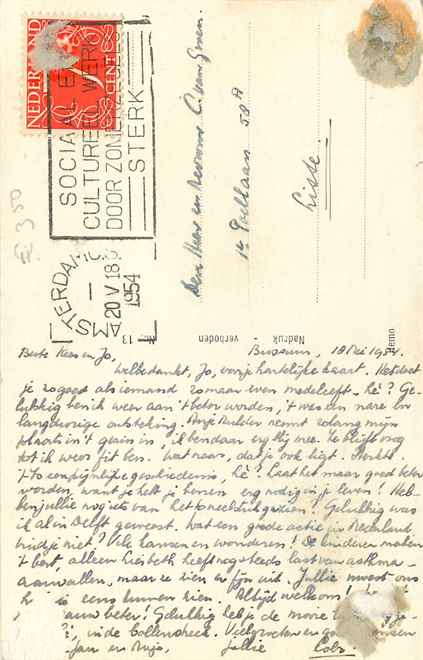 NEDERLAND
CENT
SOCIAAL EN
CULTUREEL WERK
DOOR ZOMERZEGELS
STERK
AMSTERDAM
20 V 18
1954
Den Heer en Mevrouw
1e Poellaan 58A
Lisse.
Nadruk verboden
No. 13
Bussum, 18 Mei 1954.
Beste Kees en Jo,
Wel bedankt, Jo, voor je hartelijke kaart. Het doet
je zo goed als iemand zomaar even medeleeft, hè? Ge-
lukkig ben ik weer aan 't beter worden, 't was een nare en
langdurige ontsteking. Mulder neemt zolang mijn
plaats in 't gezin in, ik ben daar erg blij mee. Ze blijft nog
tot ik weer fit ben. Wat naar, dat je ook ligt.
't Is een pijnlijke geschiedenis, hè? Laat het maar goed beter
worden, want je hebt je benen erg nodig in je leven! Heb-
ben jullie nog iets van het gezien? Gelukkig was
ik al in Delft geweest. Wat een goede actie in Nederland,
vind je niet? Vele kansen en wonderen! De kinderen maken
't best, alleen Liesbeth heeft nog steeds last van asthma-
aanvallen, maar ze zien er fijn uit. Jullie moest ons
eens kunnen zien. Altijd welkom!
gauw beter! Gelukkig heb je de mooie
in de Bollenstreek. Veel groeten en
Jan en jullie